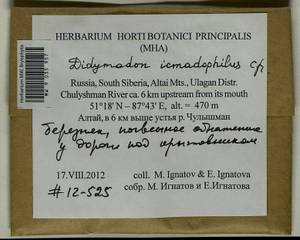 HERBARIUM HORTI BOTANICI PRINCIPALIS
(MHA)
Didymodon icmadophilus
Russia, South Siberia, Altai Mts., Ulagan Distr.
Chulyshman River ca. 6 km upstream from its mouth
51°18' N – 87°43' E, alt. = 470 m
Алтай, в 6 км выше устья р. Чулышман
березняк, почвенное обнажение
у дороги под крыжовником
17.VIII.2012 coll. M. Ignatov & E. Ignatova
собр. М. Игнатов и Е.Игнатова
#12-525